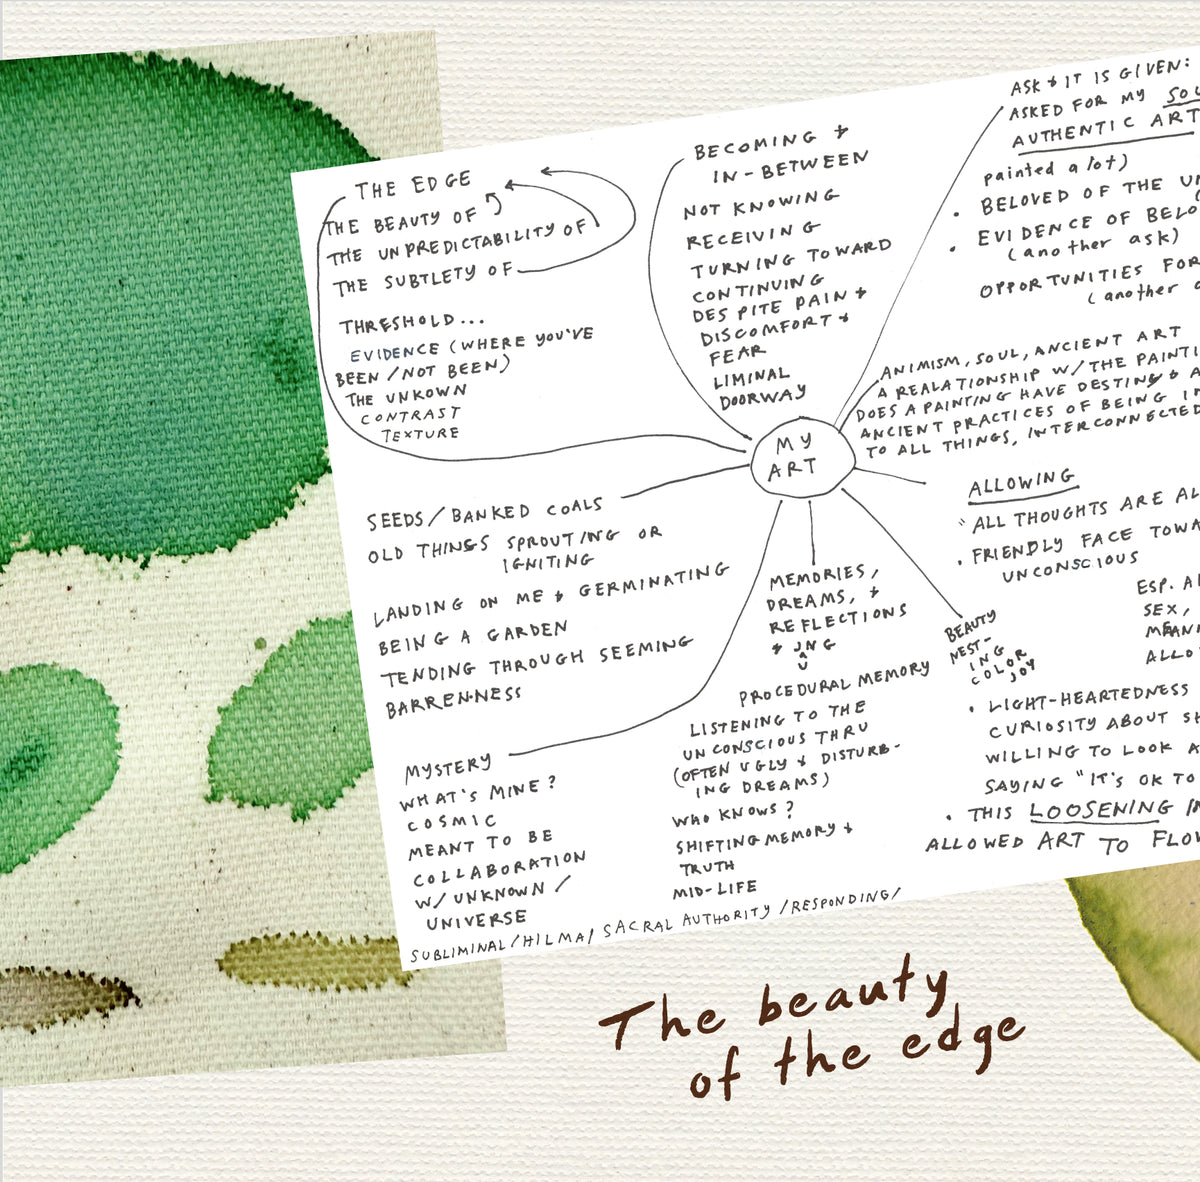 THE EDGE
THE BEAUTY OF
THE UNPREDICTABILITY OF
THE SUBTLETY OF
THRESHOLD...
EVIDENCE (WHERE YOU'VE
BEEN / NOT BEEN)
THE UNKOWN
CONTRAST
TEXTURE
BECOMING &
IN-BETWEEN
NOT KNOWING
RECEIVING
TURNING TOWARD
CONTINUING
DESPITE PAIN &
DISCOMFORT &
FEAR
LIMINAL
DOORWAY
ASK & IT IS GIVEN:
ASKED FOR MY
AUTHENTIC ART
painted a lot)
• BELOVED OF THE
• EVIDENCE OF
(another ask)
OPPORTUNITIES FOR
(another
ANIMISM, SOUL, ANCIENT ART
A REALATIONSHIP W/ THE
DOES A PAINTING HAVE DESTINY &
ANCIENT PRACTICES OF BEING
TO ALL THINGS, INTERCONNECTED
MY
ART
SEEDS / BANKED COALS
OLD THINGS SPROUTING OR
IGNITING
LANDING ON ME & GERMINATING
BEING A GARDEN
TENDING THROUGH SEEMING
BARRENNESS
MYSTERY
WHAT'S MINE?
COSMIC
MEANT TO BE
COLLABORATION
W/ UNKNOWN /
UNIVERSE
SUBLIMINAL / HILMA / SACRAL AUTHORITY / RESPONDING /
MEMORIES,
DREAMS, &
REFLECTIONS
& JUNG
PROCEDURAL MEMORY
LISTENING TO THE
UNCONSCIOUS THRU
(OFTEN UGLY & DISTURB-
ING DREAMS)
WHO KNOWS?
SHIFTING MEMORY &
TRUTH
MID-LIFE
BEAUTY
NEST-
ING
COLOR
JOY
ALLOWING
"ALL THOUGHTS ARE
• FRIENDLY FACE
UNCONSCIOUS
ESP.
SEX,
• LIGHT-HEARTEDNESS
CURIOSITY ABOUT
WILLING TO LOOK
SAYING "IT'S OK TO
• THIS LOOSENING
ALLOWED ART TO
The beauty
of the edge